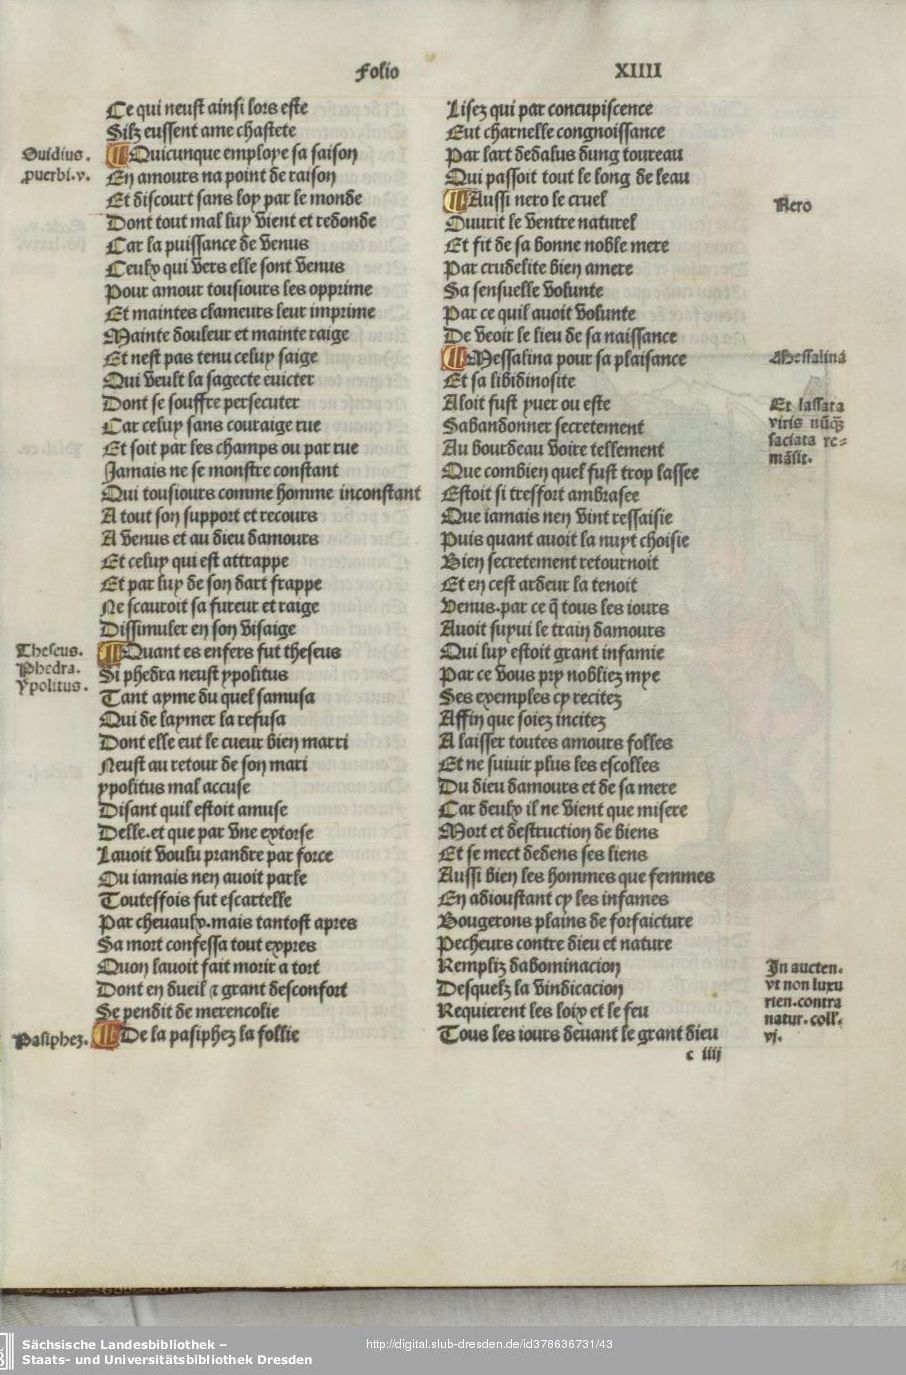 Folio XIIII
Ce qui neust ainsi lors este
Silz eussent ame chastete
Ouidius.
Quicunque employe sa saison
prouerbi.v.
En amours na point de raison
Et discourt sans loy par le monde
Dont tout mal luy vient et redonde
Car la puissance de venus
Ceulx qui vers elle sont venus
Pour amour tousiours les opprime
Et maintes clameurs leur imprime
Mainte douleur et mainte raige
Et nest pas tenu celuy saige
Qui veult la sagecte euicter
Dont se souffre persecuter
Car celuy sans couraige rue
Et soit par les champs ou par rue
Jamais ne se monstre constant
Qui tousiours comme homme inconstant
A tout son support et recours
A venus et au dieu damours
Et celuy qui est attrappe
Et par luy de son dart frappe
Ne scauroit sa fureur et raige
Dissimuler en son visaige
Theseus.
Phedra.
Ypolitus.
Quant es enfers fut theseus
Si phedra neust ypolitus
Tant ayme du quel samusa
Qui de laymer la refusa
Dont elle eut le cueur bien marri
Neust au retour de son mari
ypolitus mal accuse
Disant quil estoit amuse
Delle.et que par vne extorse
Lauoit voulu prandre par force
Ou iamais nen auoit parle
Touteffois fut escartelle
Par cheuaulx.mais tantost apres
Sa mort confessa tout expres
Quon lauoit fait morir a tort
Dont en dueil ⁊ grant desconfort
Se pendit de merencolie
Pasiphez.
De la pasiphez la follie
Lisez qui par concupiscence
Eut charnelle congnoissance
Par lart dedalus dung toureau
Qui passoit tout le long de leau
Aussi nero le cruel
Nero
Ouurit le ventre naturel
Et fit de sa bonne noble mere
Par crudelite bien amere
Sa sensuelle volunte
Par ce quil auoit volunte
De veoir le lieu de sa naissance
Messalina pour sa plaisance
Messalina
Et sa libidinosite
Aloit fust yuer ou este
Sabandonner secretement
Au bourdeau voire tellement
Que combien quel fust trop lassee
Et lassata
viris nūq̄
saciata re=
māsit.
Estoit si tresfort ambrasee
Que iamais nen vint ressaisie
Puis quant auoit la nuyt choisie
Bien secretement retournoit
Et en cest ardeur la tenoit
Venus.par ce q̄ tous les iours
Auoit suyui le train damours
Qui luy estoit grant infamie
Par ce vous pry nobliez mye
Ses exemples cy recitez
Affin que soiez incitez
A laisser toutes amours folles
Et ne suiuir plus les escolles
Du dieu damours et de sa mere
Car deulx il ne vient que misere
Mort et destruction de biens
Et se mect dedens ses liens
Aussi bien les hommes que femmes
En adioustant cy les infames
Bougerons plains de forfaicture
Pecheurs contre dieu et nature
Rempliz dabominacion
Desquelz la vindicacion
Requierent les loix et le feu
Tous les iours deuant le grant dieu
In aucten.
vt non luxu
rien.contra
natur.coll.
vj.
c iiij
Sächsische Landesbibliothek –
Staats- und Universitätsbibliothek Dresden
http://digital.slub-dresden.de/id378636731/43